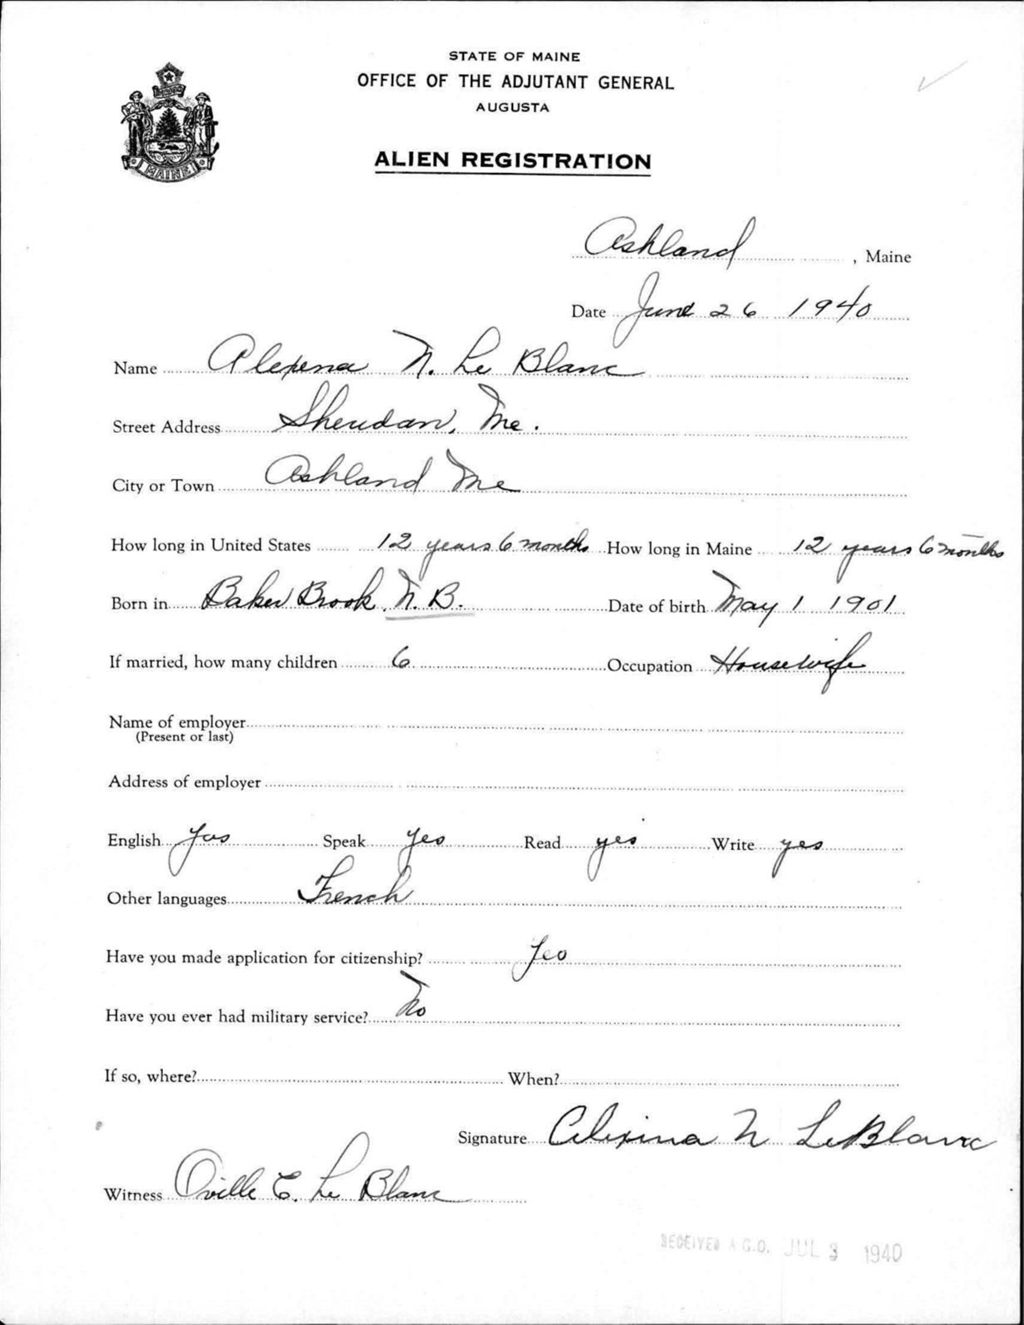 STATE OF MAINE
OFFICE OF THE ADJUTANT GENERAL
AUGUSTA
ALIEN REGISTRATION
MAINE
Ashland, Maine
Date June 26 1940
Name Alexena N. Le Blanc
Street Address Sheridan, Me.
City or Town Ashland Me
How long in United States 12 years 6 months How long in Maine 12 years 6 months
Born in Baker Brook, N.B. Date of birth May 1 1901
If married, how many children 6 Occupation Housewife
Name of employer
(Present or last)
Address of employer
English Yes Speak Yes Read yes Write yes
Other languages French
Have you made application for citizenship? Yes
Have you ever had military service? No
If so, where? When?
Signature Alexina N LeBlanc
Witness Oville E. Le Blanc
RECEIVED A.G.O. JUL 3 1940